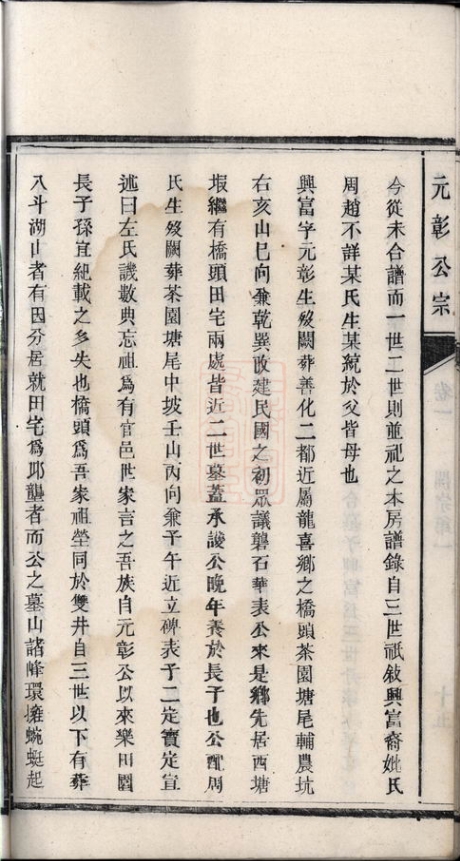 元彰公宗
今從未合譜而一世二世則並祀之本房譜錄自三世祇敘興富裔妣氏
周趙不詳某氏生某統於父皆母也
興富字元彰生歿闕葬善化二都近屬龍喜鄉之橋頭茶園塘尾輔農坑
右亥山巳向兼乾巽改建民國之初眾議礱石華表公來是鄉先居西塘
塅繼有橋頭田宅兩處皆近二世墓蓋承諼公晚年養於長子也公配周
氏生歿闕葬茶園塘尾中坡壬山丙向兼子午近立碑表子二定寶定宣
述曰左氏譏數典忘祖為有官邑世家言之吾族自元彰公以來樂田園
長子孫宜紀載之多失也橋頭為吾家祖塋同於雙井自三世以下有葬
八斗湖山者有因分居就田宅為邱壟者而公之墓山諸峰環擁蜿蜒起